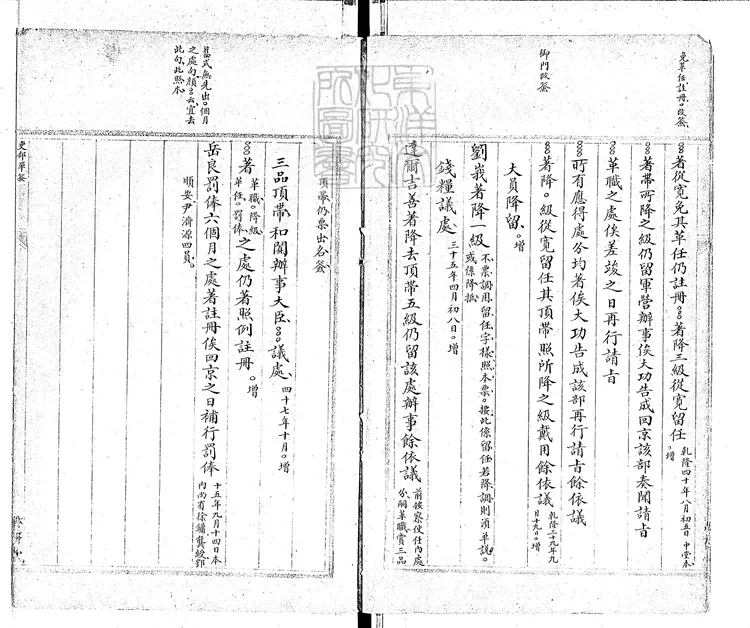 免革任註冊。改簽
御門改簽
。。著從寬免其革任仍註冊。。著降三級從寬留任 乾隆四十年八月初五日中堂本。增
。。著帶所降之級仍留軍營辦事俟大功告成回京該部奏聞請㫖
。。革職之處俟差竣之日再行請㫖
。。所有應得處分均著俟大功告成該部再行請㫖餘依議
。。著降。級從寬留任其頂帶照所降之級戴用餘依議 乾隆三十九年九月十九日。增
大員降留。增
劉峩著降一級 不票調用留任字樣照本票。按此係留任若降調則湏單說。或係降抵
錢糧議處 三十五年四月初八日。增
達爾吉善著降去頂帶五級仍留該處辦事餘依議 前按察使任內處分嗣革職賞三品
舊式無先出。個月之處向頗。云宜去此句此照本
頂帶仍票出名簽
三品頂帶和闐辦事大臣。。議處 四十七年十月。增
。。著革職。降級革任。罰俸之處仍著照例註冊。增
岳良罰俸六個月之處著註冊俟回京之日補行罰俸 十五年九月十四日本內尚有徐鏞龔綬鄂
順安尹濟源四員
吏部單簽